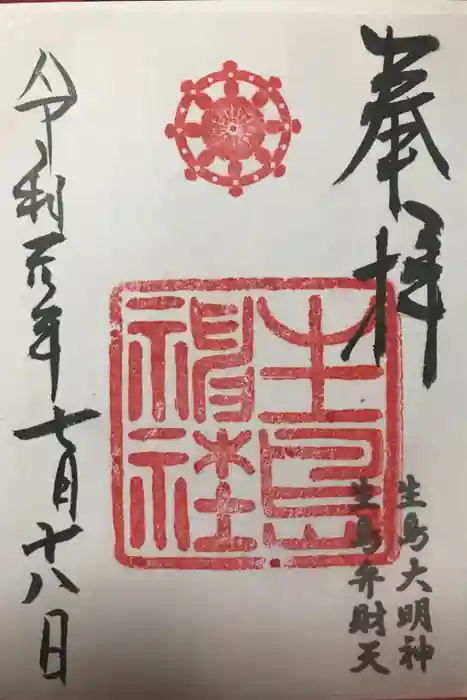 奉拝
生島大明神
生島弁財天
生島神社
令和元年七月十八日